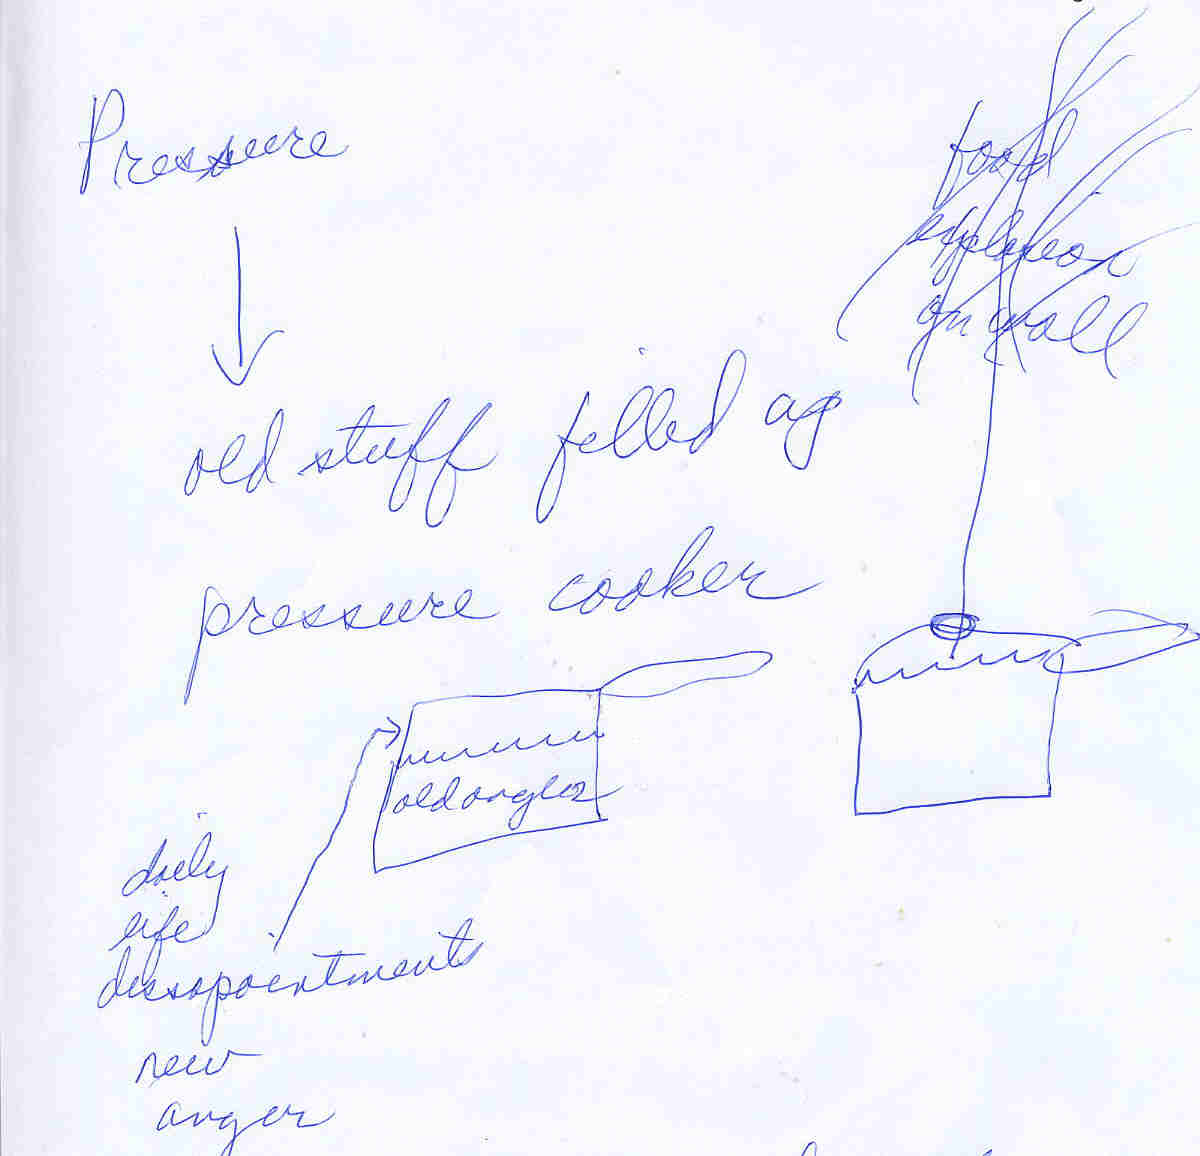 Pressure
food
explosion
on wall
old stuff filled up
pressure cooker
old anger
daily
life
dissapointments
new
anger